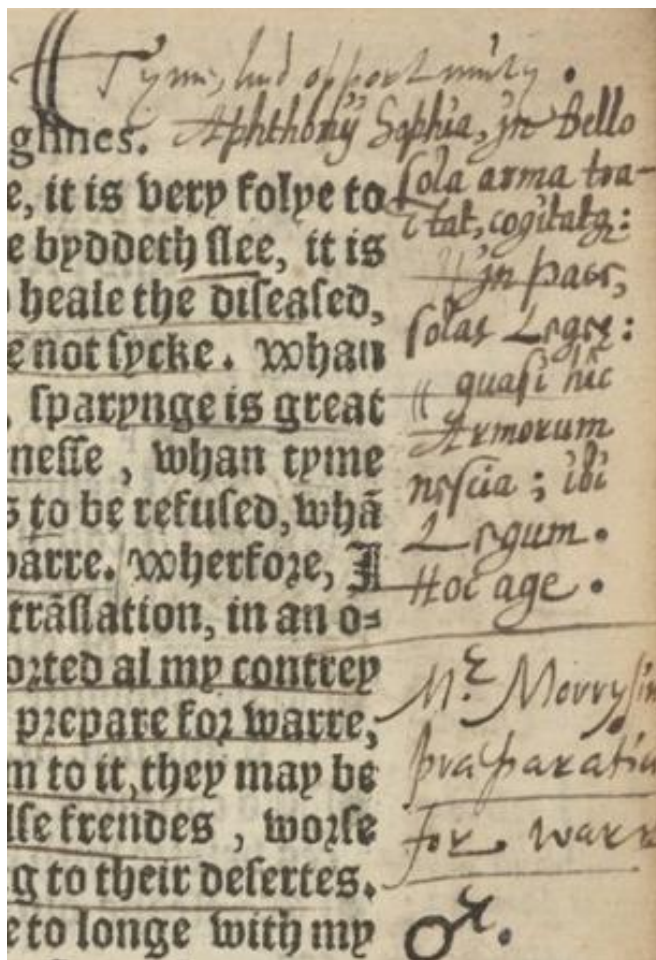 Tyme, and opportunity.
glines.
e, it is very folye to
e byddeth slee, it is
heale the diseased,
e not sycke. Whan
, sparynge is great
nesse , whan tyme
s to be refused, whā
parre. Wherfore, I
trāslation, in an o=
orted al my contrey
prepare for warre,
m to it, they may be
lse frendes , worse
g to their desertes.
e to longe with my
Aphthonij Sophia, in Bello
sola arma tra-
ctat, cogitatq:
in pace,
solas Leges:
quasi hic
Armorum
nescia ; ibi
Legum.
Hoc age.
Mr Morrysin
præparatiu
for warr
♂.